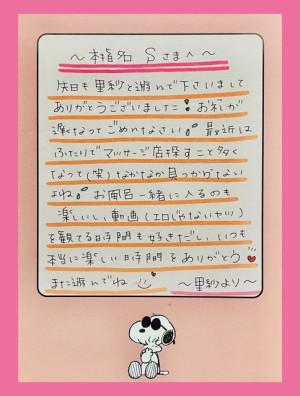 〜本椎名 Sさまへ〜
先日も里紗と遊んで下さいまして
ありがとうございました！お礼が
遅くなってごめんなさい 最近は
ふたりでマッサージ店探すこと多く
なって(笑)なかなか見つからない
よね お風呂一緒に入るのも
楽しいし動画(エロじゃないヤツ)
を観てる時間も好きだし、いつも
本当に楽しい時間をありがとう
また遊んでね 〜里紗より〜